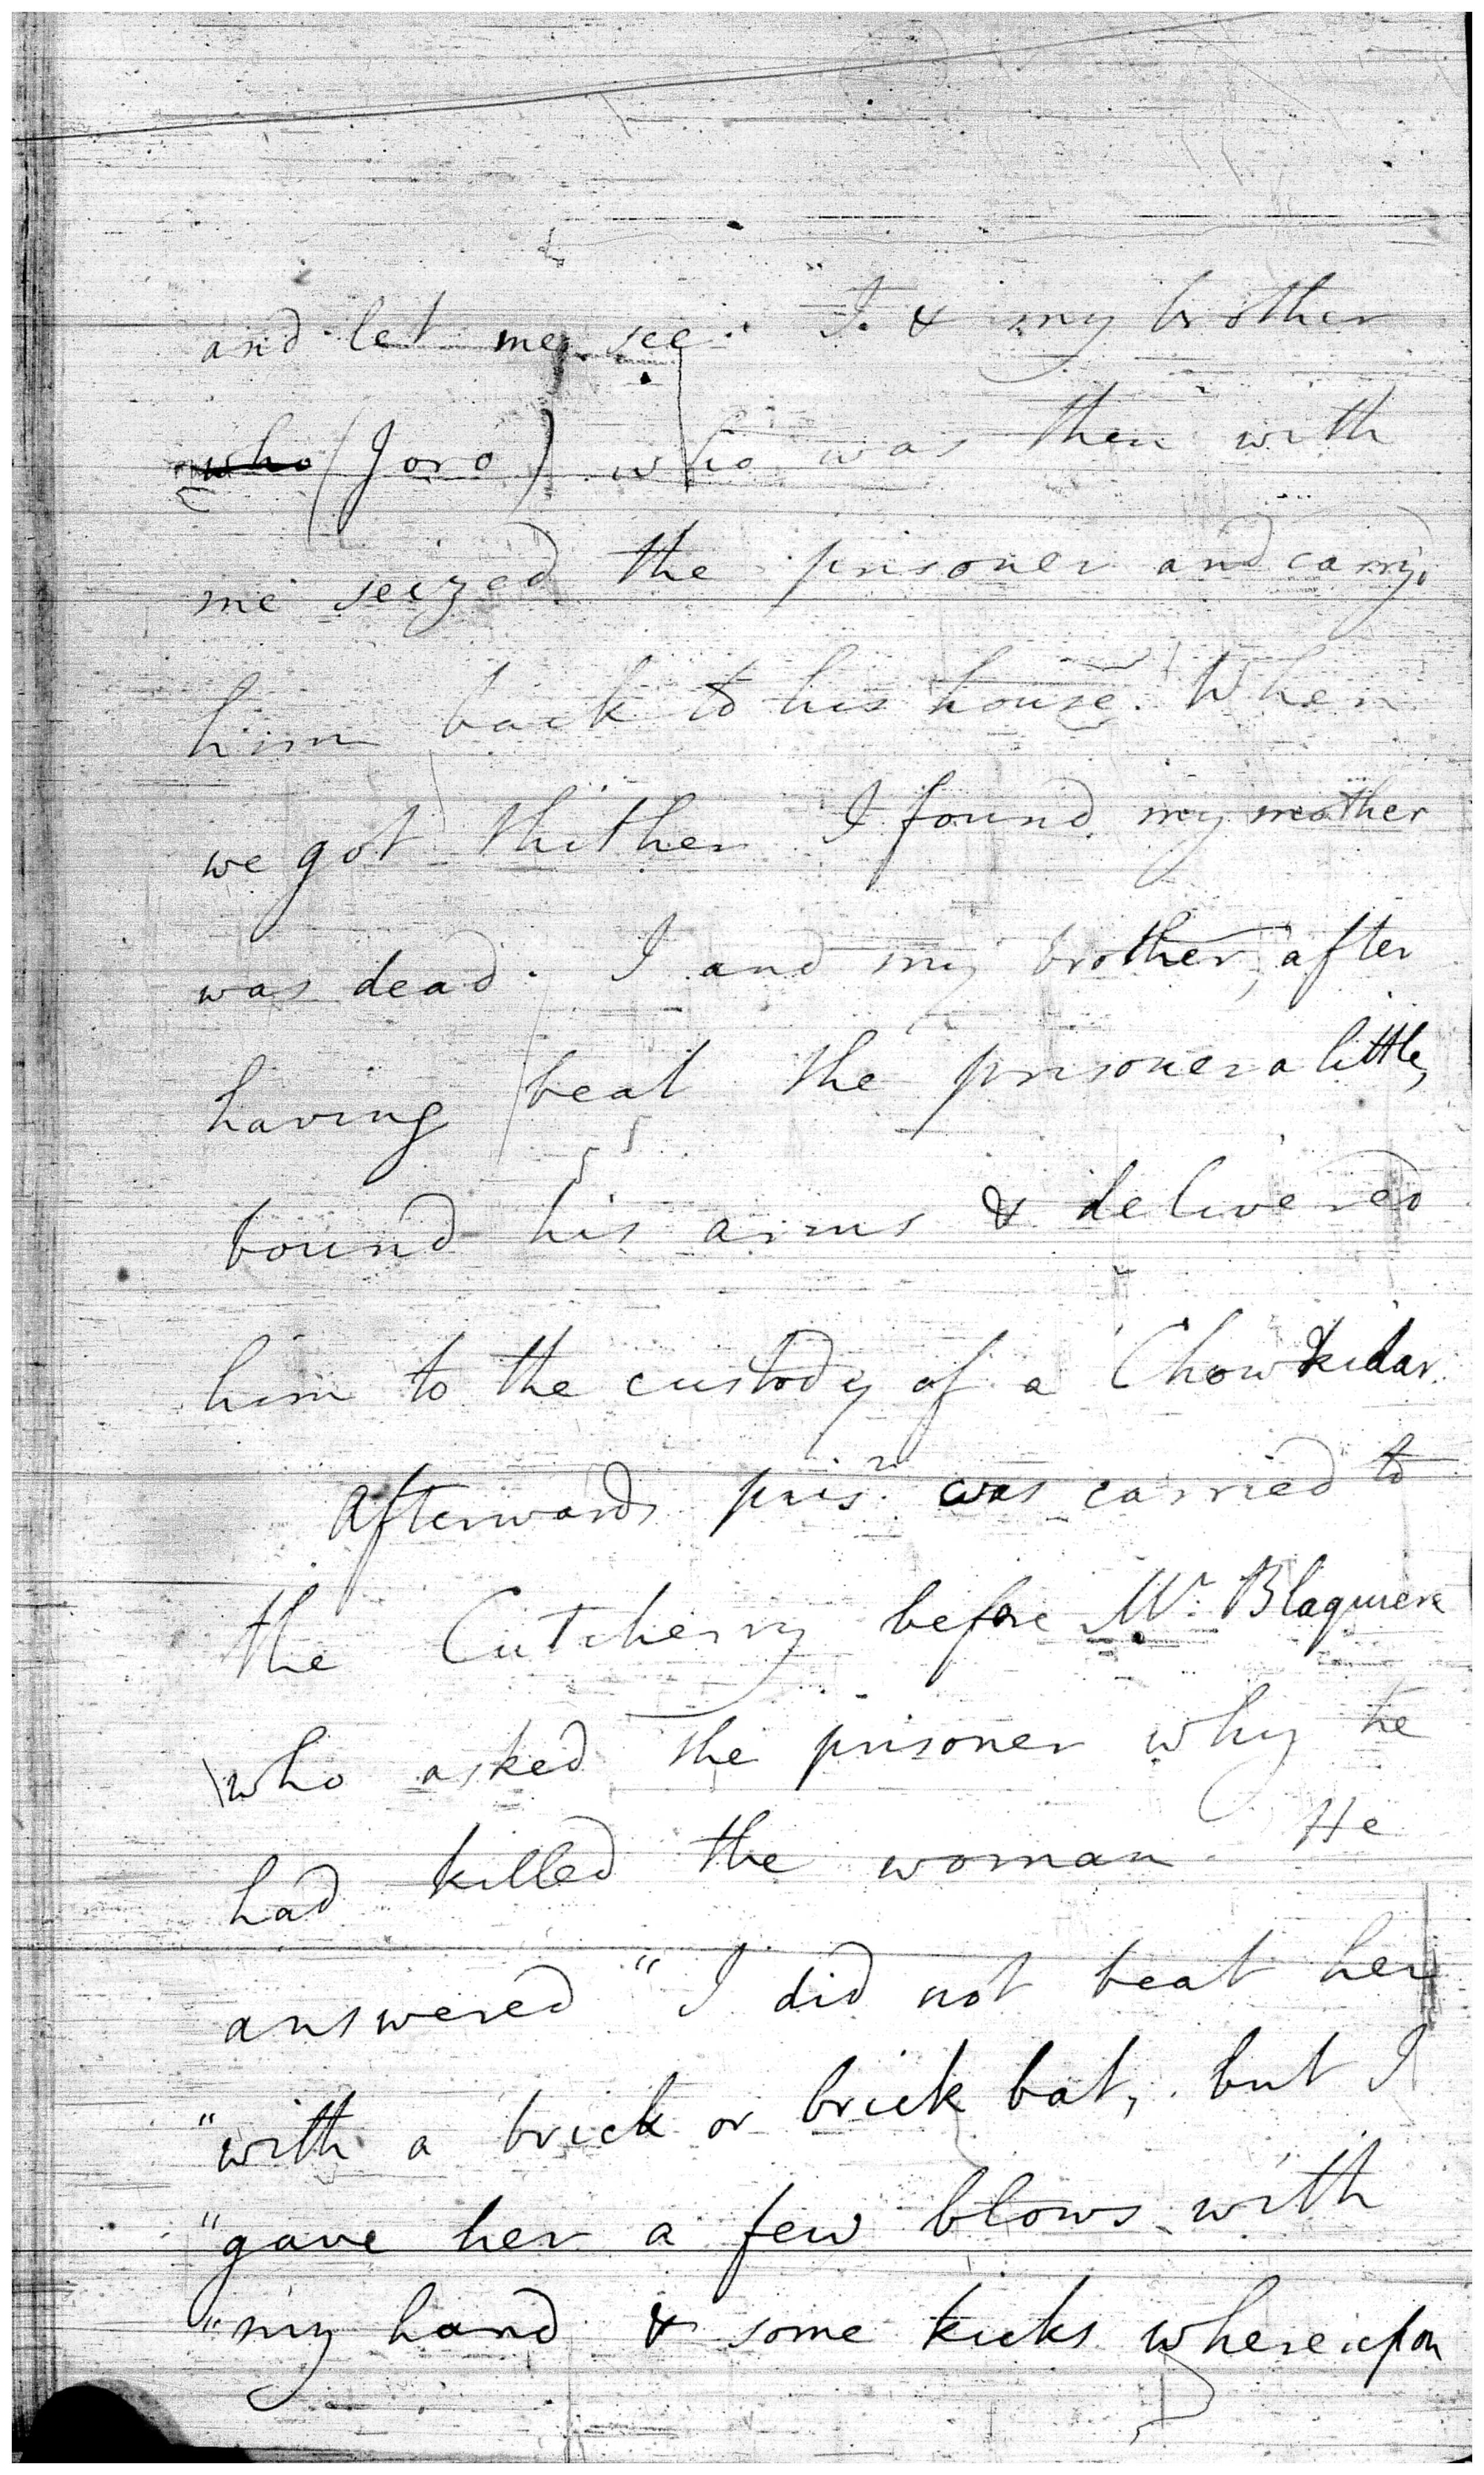 and let me see." I & my brother
who (Joro) who was then with
me seized the prisoner and carry.
him back to his house. When
we got thither I found my mother
was dead. I and my brother, after
having beat the prisoner a little,
bound his arms & delivered
him to the custody of a Chowkidar.
Afterwards pris.r was carried to
the Cutcherry before Mr. Blaquiere
who asked the prisoner why he
had killed the woman. He
answered "I did not beat her
"with a brick or brick bat, but I
"gave her a few blows with
"my hand & some kicks whereupon